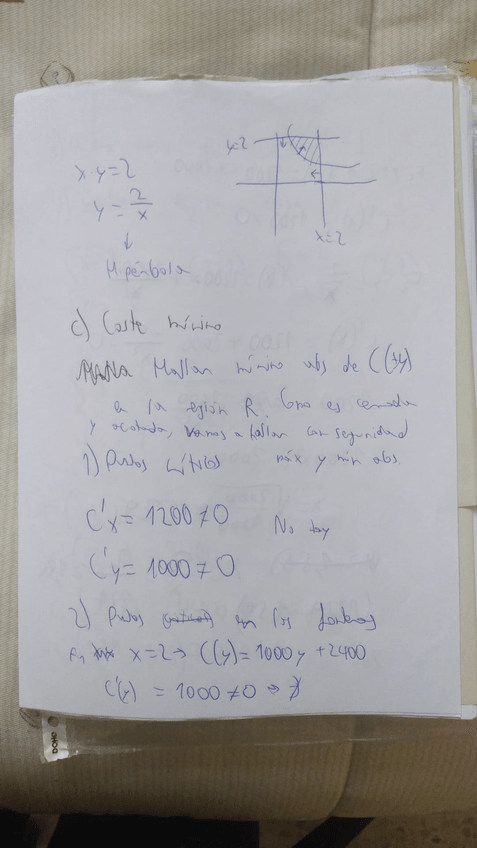 y=2
x·y=2
y=2/x
↓
x=2
Hipérbola
c) Coste mínimo
Hallar mínimo abs de C(x,y)
en la región R. Como es cerrada
y acotada, vamos a hallar con seguridad
máx y min abs.
1) Puntos críticos
C'x = 1200 ≠ 0
No hay
C'y = 1000 ≠ 0
2) Puntos en las fronteras
En x=2 → C(y) = 1000y + 2400
C'(y) = 1000 ≠ 0 ⇒ ∄
DOHE